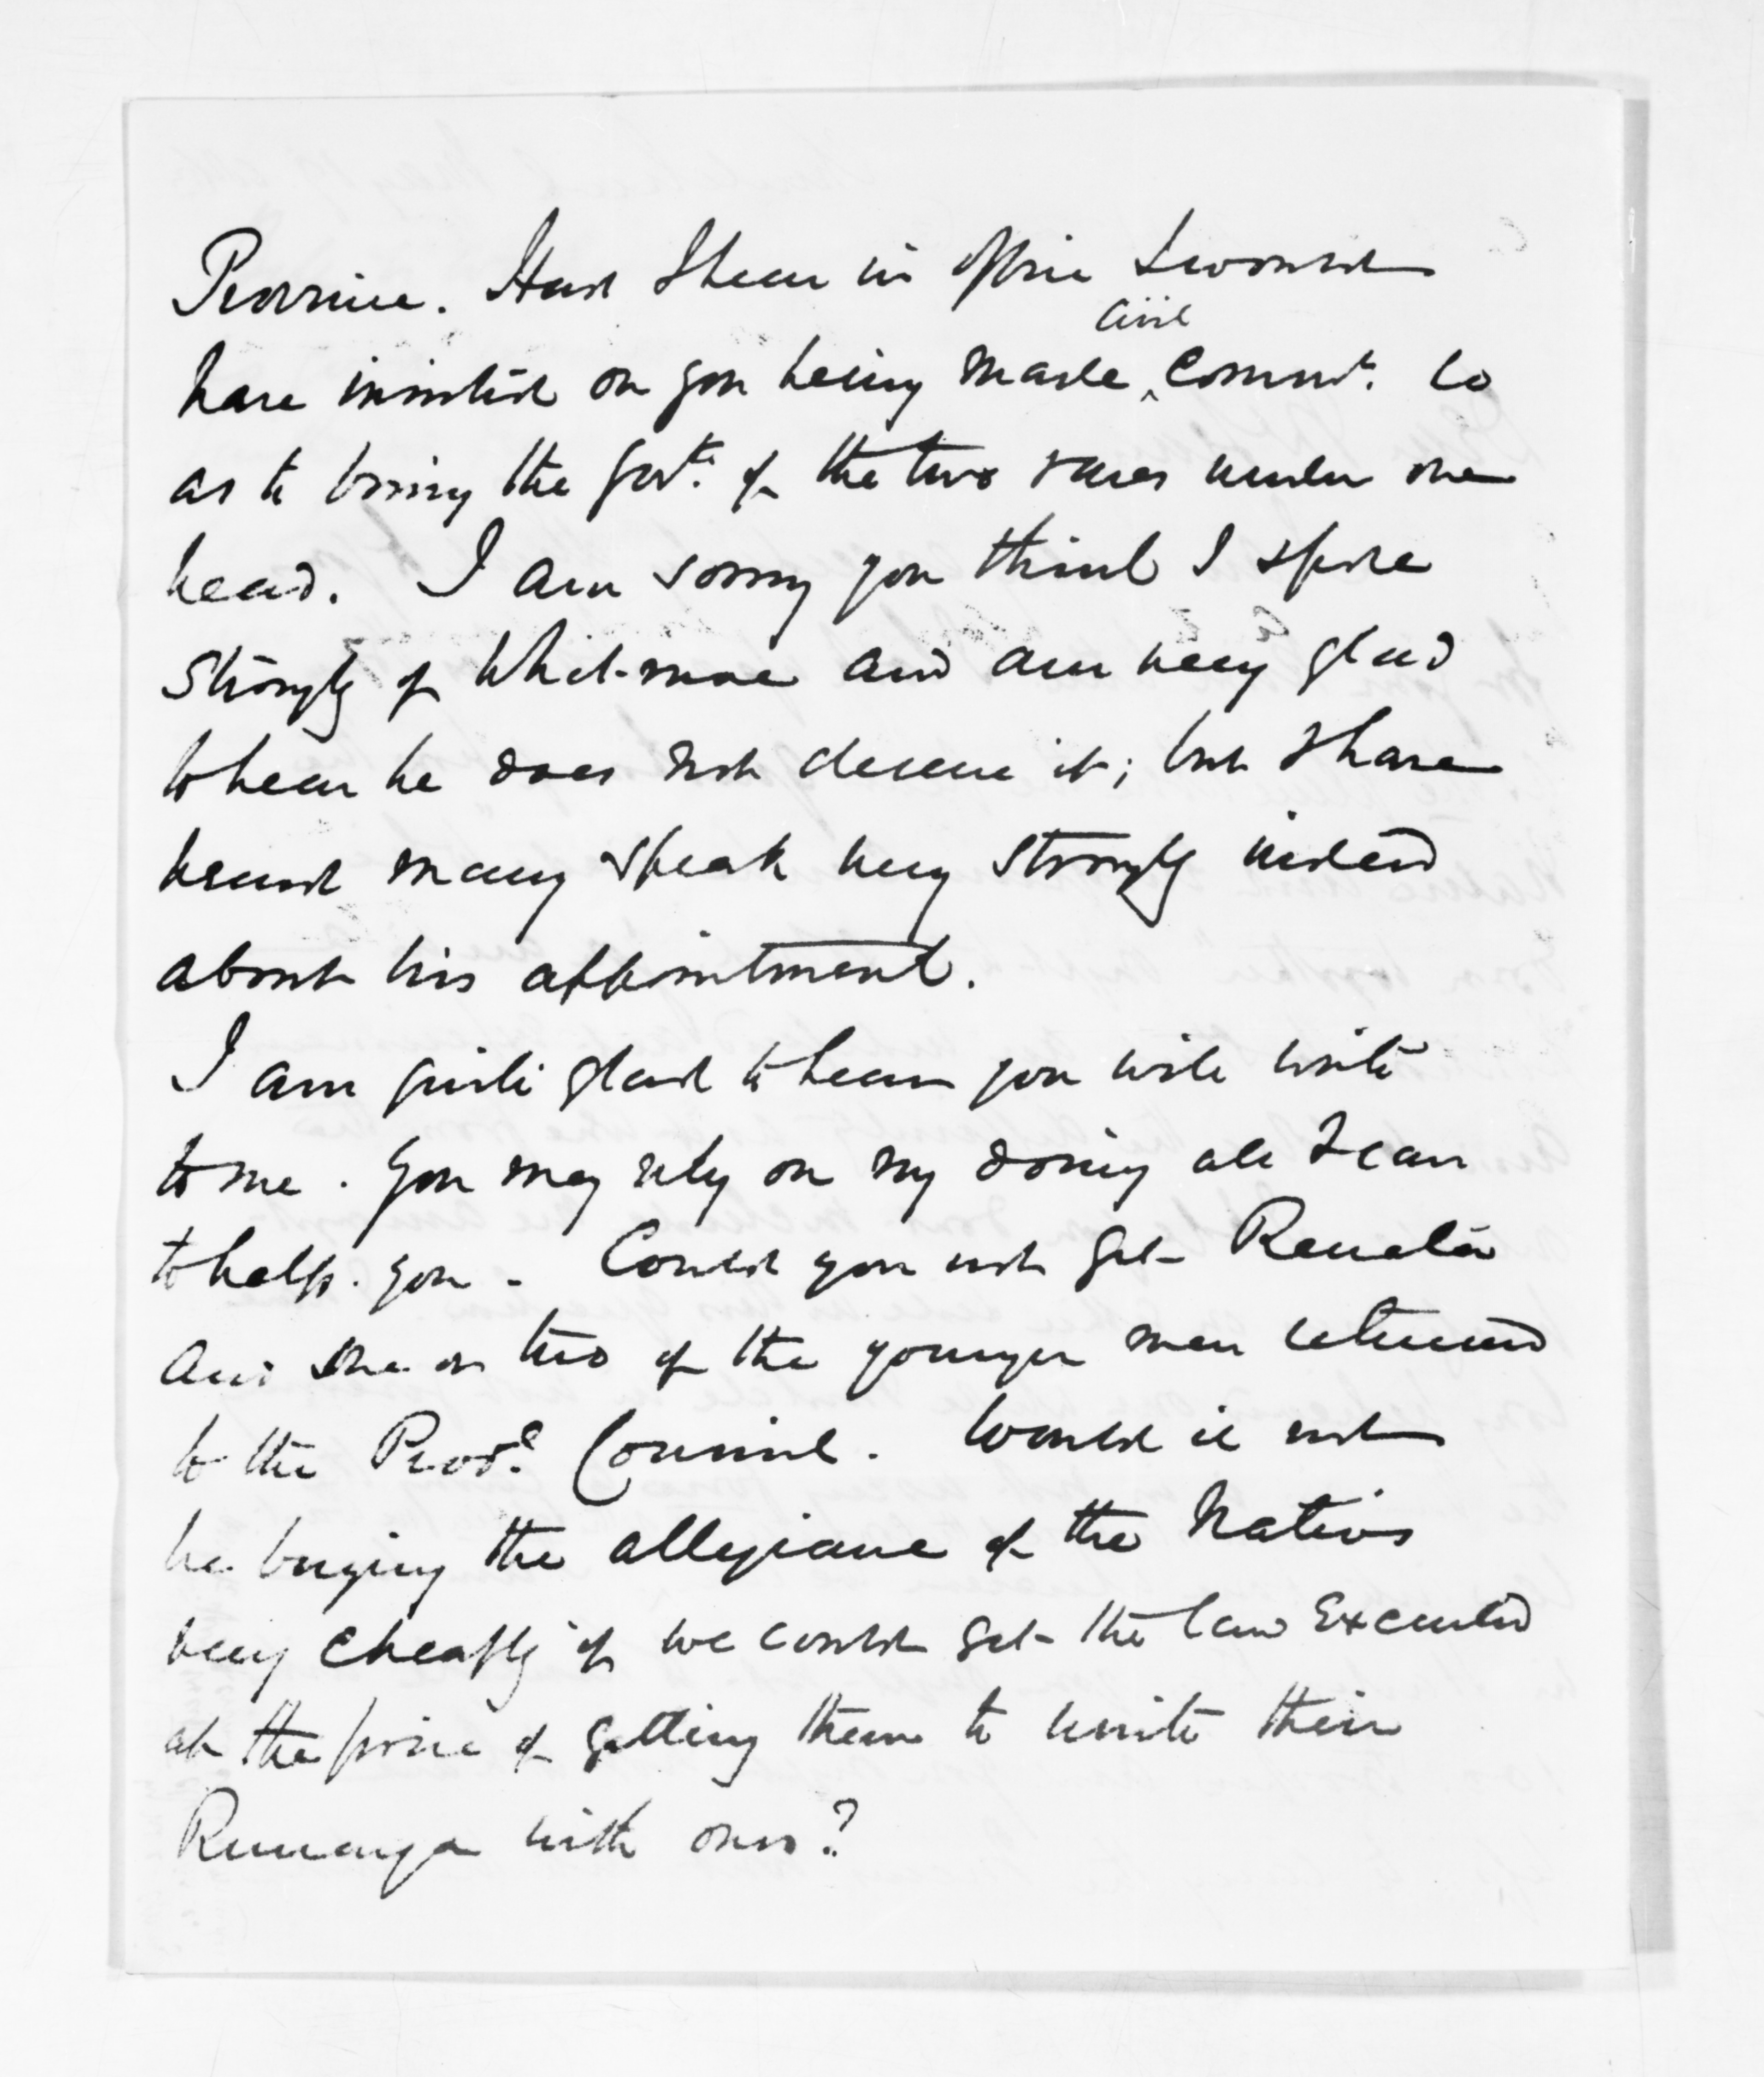 Province. Had I been in office I would
have insisted on you being made ^civil Commr. so
as to bring the Govt. of the two races under one
head. I am sorry you think I spoke
strongly of Whitmore and am very glad
to hear he does not deserve it; but I have
heard many speak very strongly indeed
about his appointment.
I am quite glad to hear you will write
to me. You may rely on my doing all I can
to help. you - Could you not get Renata
and one or two of the younger men returned
to the Provl. Council. Would it not
be buying the allegiance of the Natives
very cheaply if we could get the law executed
at the price of getting them to unite their
Runanga with ours?